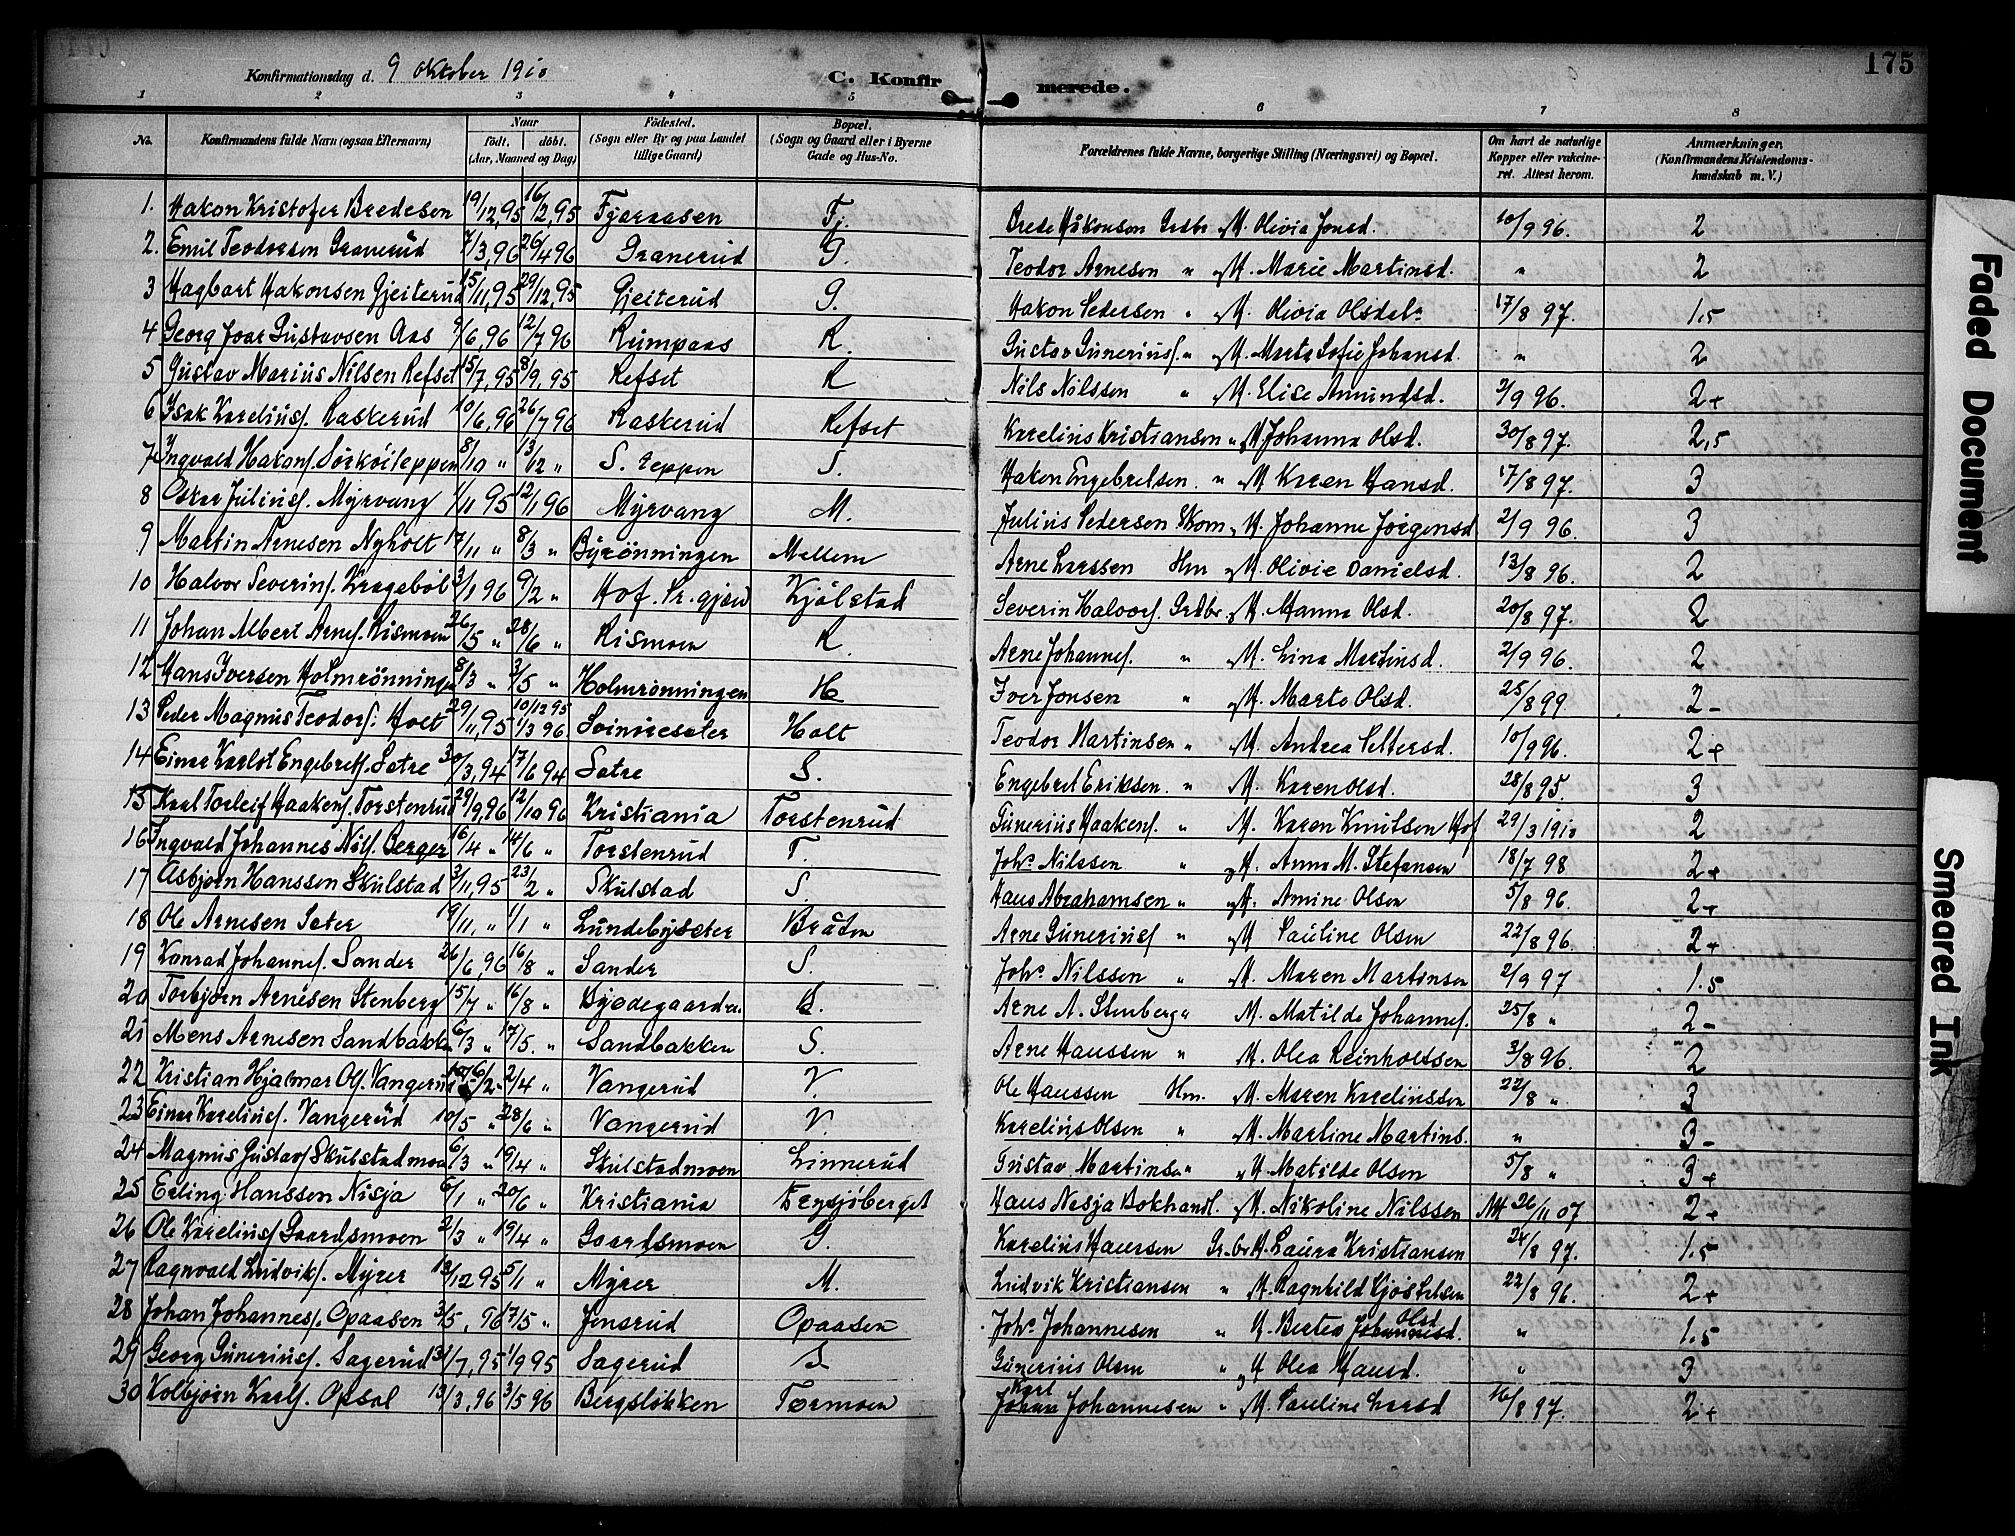 Konfirmationsdag d. 9 Oktober 1910 C. Konfirmerede. 175
1 2 3 4 5 6 7 8
No. Konfirmandens fulde Navn (ogsaa Efternavn) Naar födt. döbt. (Aar, Maaned og Dag) Födested. (Sogn eller By og paa Landet tillige Gaard) Bopæl. (Sogn og Gaard eller i Byerne Gade og Hus-No. Forældrenes fulde Navne, borgerlige Stilling (Næringsvei) og Bopæl. Om havt de naturlige Kopper eller vakcineret. Attest herom. Anmærkninger. (Konfirmandens Kristendomskundskab m. V.)
1. Hakon Kristofer Bredesen 19/12,95 16/2,95 Fjæraasen Fj. Brede Håkonson Grdbr M. Olivia Jonsd. 10/9 96. 2
2. Emil Teodorsen Granerud 7/3,96 26/4 96 Granerud G. Teodor Arnesen " og M. Marie Martinsd. " 2
3 Hagbart Hakonsen Gjeiterud 15/11,95 29/12,95 Gjeiterud G. Hakon Pedersen " M. Olivia Olsdtr 17/8 97. 1.5
4 Georg Joar Gustavsen Aas 9/6,96 12/7 96 Rumpaas R. Gustav Gunerius. " M. Marta Sofie Johansd. " 2
5 Gustav Marius Nilsen Refset 15/7,95 8/9,95 Refset R Nils Nilssen " M. Elise Amundsd. 2/9 96. 2+
6 Isak Karelius. Raskerud 10/6,96 26/7 96 Raskerud Refset Karelius Kristiansen " M Johanna Olsd. 30/8 97. 2,5
7 Ingvald Hakons. Sörköiteppen 8/10 " 13/12 " S. Teppen S. Hakon Engebretsen. " M Karen Hansd. 17/8 97. 3
8 Oskar Julius. Myrvang 1/11 95 12/1 96 Myrvang M. Julius Pedersen Skom " M. Johanne Jörgensd 2/9 96. 3
9 Martin Arnesen Nyholt 17/11 " 8/3 " Byrönningen Mellem Arne Larssen Hm og M. Olivie Danielsd. 13/8 96. 2
10 Halvor Severins. Krageböl 3/1 96 9/2 " Hof. Kjölstad Severin Halvors. Grdbr M. Hanna Olsd. 20/8 97. 2
11 Johan Albert Arnes. Rismoen 26/5 " 28/6 " Rismoen R. Arne Johannes. " og M. Lina Martinsd. 2/9 96. 2
12 Hans Iversen Holmrönningen 8/3 " 3/5 " Holmrönningen H Iver Jonsen " og M. Marte Olsd. 25/8 99. 2-
13 Peder Magnus Teodors. Holt 29/11,95 10/12 95 1/3 96 Holt Teodor Martinsen " M. Andrea Pettersd. 10/9 96. 2+
14 Einar Karlot Engebrets. Sætre 30/3,94 17/6 94 Sætre S. Engebret Eriksen. " M. Karen Olsd. 28/8 95. 3
15 Karl Torleif Haakens. Torstenrud 29/9,96 12/10 96 Kristiania Torstenrud Gunerius Haakens. " M. Karen Knutsen Hof 29/3 1910 2
16 Ingvald Johannes Nils. Berger 16/4 " 14/6 " Torstenrud T. Johs. Nilssen " M. Anna M. Stefansen 18/7 98 2+
17 Asbjörn Hanssen Skulstad 3/11,95 23/2 " Skulstad S. Hans Abrahamsen " og M. Amine Olsen 5/8 96. 2+
18 Ole Arnesen Sæter 19/11, " 1/1 " Lundebysæter Bråten Arne Gunerius. " og M Pauline Olsen 22/8 96. 2+
19 Konrad Johannes. Sander 26/6,96 16/8 " Sander S. Johs. Nilssen " M. Maren Martinsen 2/9 97 1.5
20 Torbjörn Arnesen Stenberg 15/7 " 16/8 " Arne A. Stenberg " M. Matilde Johannes. 25/8 " 2-
21 Mons Arnesen Sandbakken 6/3 " 17/5. " Sandbakken S. Arne Hanssen " M. Olea Reinholtssen 3/8 96. 2
22 Kristian Hjalmar Ols. Vangerud 2/4 " Vangerud V. Ole Hanssen Hm. M. Maren Kareliussen 22/8 " 3
23 Einar Karelius. Vangerud 10/5 " 28/6 " Vangerud V. Karelius Olsen " M. Martine Martins. " 3-
24 Magnus Gustav. Skulstadmoen 6/3 " 19/4 " Skulstadmoen Linnerud Gustav Martinsen " M. Matilde Olsen 5/8 " 3+
25 Erling Hanssen Nisja 6/1 " 20/6 " Kristiania Frysjöberget Hans Nesja Bokhandl. M. Nikoline Nilssen Att 26/11 07 2+
26 Ole Karelius. Gaardsmoen 2/3 " 19/4 " Gaardsmoen G. Karelius Hanssen Gr.br M. Laura Kristiansen 24/8 97. 1.5
27 Ragnvald Ludviks. Myrer 12/12 95 5/1 " Myrer M. Ludvik Kristiansen " M. Ragnhild Kjöstelsen 22/8 96. 2+
28 Johan Johannes. Opaasen 3/5, 96 17/5 " Jonsrud Opaasen Johs. Johannesen " M. Bertea Johannesd. Olsd " 1.5
29 Georg Gunerius. Sagerud 31/7,95 1/9 95 Sagerud S Gunerius Olsen " M Olea Hansd. " 3
30 Kolbjörn Karls. Opsal 13/3,96 3/5 96 Bergslökken Tormoen Johan Karl Johannesen " M. Pauline Larsd 16/8 97. 2+
Faded Document
Smeared Ink